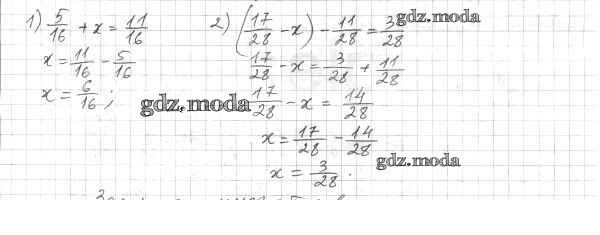 1) 5/16 + x = 11/16
x = 11/16 - 5/16
x = 6/16 ;
2) (17/28 - x) - 11/28 = 3/28
17/28 - x = 3/28 + 11/28
17/28 - x = 14/28
x = 17/28 - 14/28
x = 3/28 .
gdz.moda
gdz.moda
gdz.moda